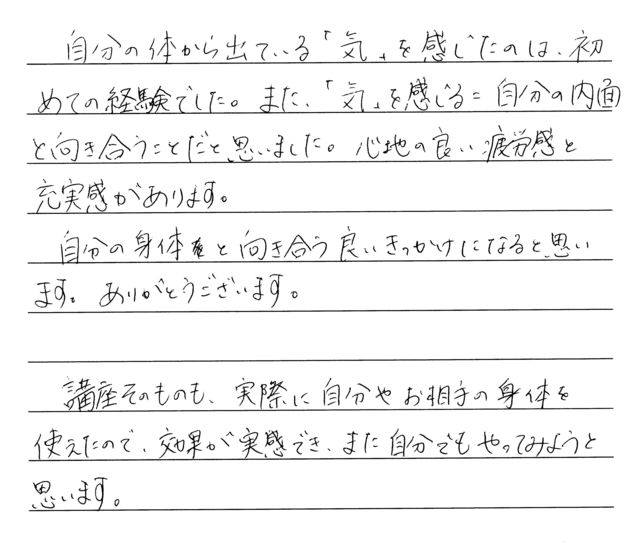 自分の体から出ている「気」を感じたのは、初
めての経験でした。また、「気」を感じる=自分の内面
と向き合うことだと思いました。心地の良い疲労感と
充実感があります。
自分の身体と向き合う良いきっかけになると思い
ます。ありがとうございます。
講座そのものも、実際に自分やお相手の身体を
使えたので、効果が実感でき、また自分でもやってみようと
思います。